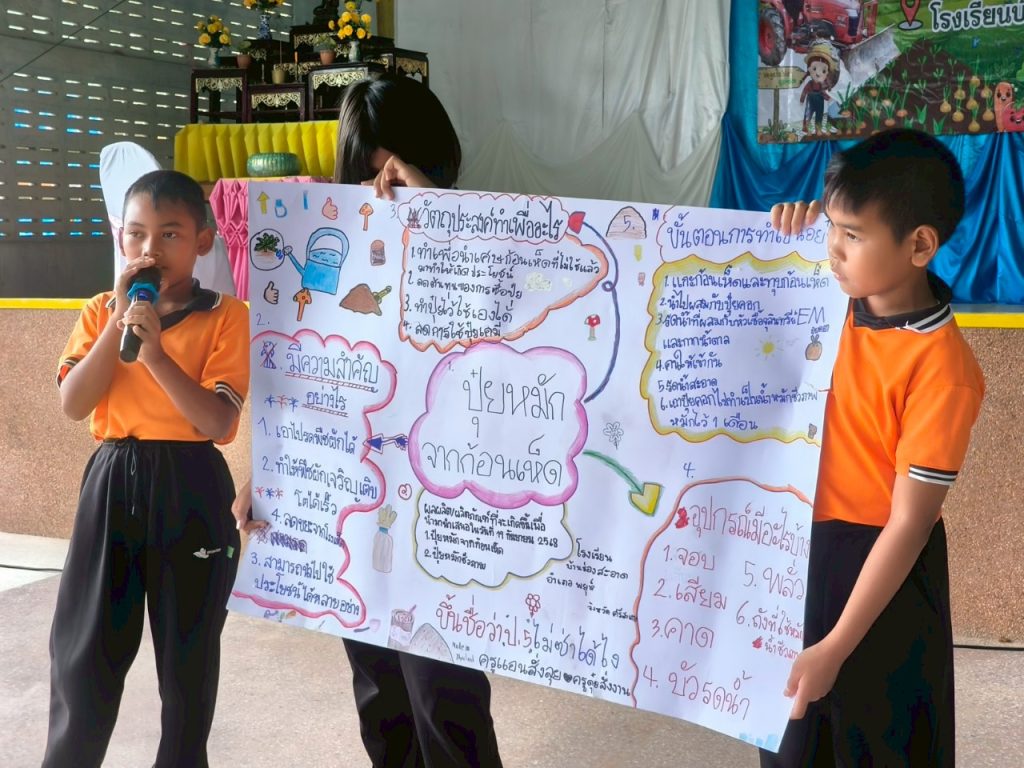 โรงเรียนบ้
3.
วัตถุประสงค์ทำเพื่ออะไร
1. ทำเพื่อนำเศษก้อนเห็ดที่ไม่ใช้แล้ว
มาทำให้เกิดประโยชน์
2. ลดต้นทุนของการซื้อปุ๋ย
3. ทำปุ๋ยไว้ใช้เองได้
4. ลดการใช้ปุ๋ยเคมี
5.
ขั้นตอนการทำ
1. แกะก้อนเห็ดและทุบก้อนเห็ด
2. นำไปผสมกับปุ๋ยคอก
3. รดน้ำที่ผสมกับหัวเชื้อจุลินทรีย์ EM
และกากน้ำตาล
4. คนให้เข้ากัน
5. รดน้ำสะอาด
6. เอาปุ๋ยคอกไปทำเป็นน้ำหมักชีวภาพ
หมักไว้ 1 เดือน
2.
มีความสำคัญ
อย่างไร
1. เอาไปรดพืชผักได้
2. ทำให้พืชผักเจริญเติบ
โตได้เร็ว
4. ลดขยะจาก
3. สามารถนำไปใช้
ประโยชน์ได้หลายอย่าง
1.
ปุ๋ยหมัก
จากก้อนเห็ด
ผลผลิต/ผลิตภัณฑ์ที่จะเกิดขึ้นเมื่อ
นำมาเสนอในวันที่ 11 กันยายน 2568
1. ปุ๋ยหมักจากก้อนเห็ด
2. ปุ๋ยหมักชีวภาพ
โรงเรียน
บ้านร่องสะอาด
อำเภอ พยุห์
จังหวัด
4.
อุปกรณ์มีอะไรบ้าง
1. จอบ
2. เสียม
3. คาด
4. บัวรดน้ำ
5. พลั่ว
6. ถังที่ใช้หมัก
ขึ้นชื่อว่าป.5 ไม่ซ่าได้ไง
ครูแอนสั่งลุย ครูตุ๋สั่งงาน
Made in
Thailand